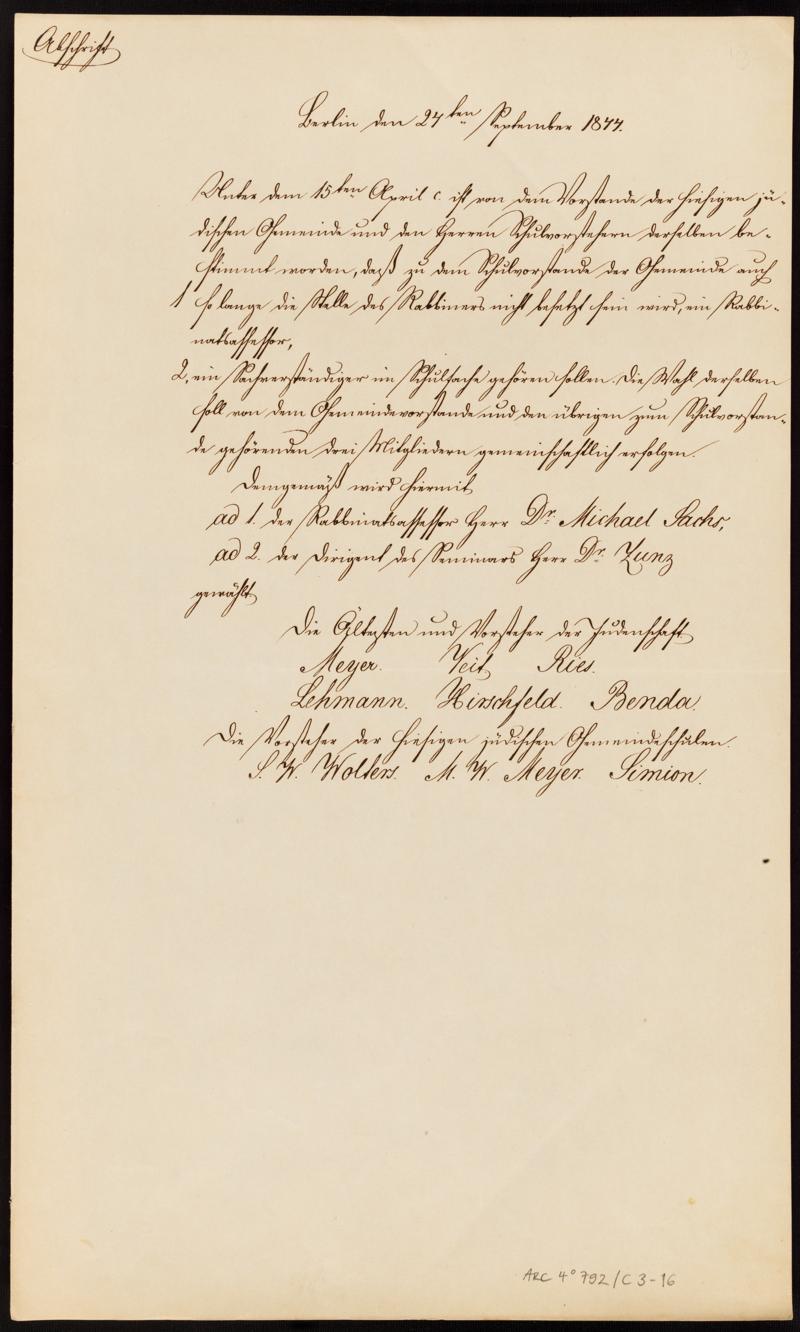 Abschrift
Berlin den 24ten September 1844.
Unter dem 15ten April c. ist von dem Vorstande der hiesigen jü-
dischen Gemeinde und den Herren Schulvorstehern derselben be-
stimmt worden, daß zu dem Schulvorstande der Gemeinde auch
1 so lange die Stelle des Rabbiners nicht besetzt sein wird, ein Rabbi-
natsassessor,
2, ein Sachverständiger im Schulfache gehören sollen. Die Wahl derselben
soll von dem Gemeindevorstande und den übrigen zum Schulvorstan-
de gehörenden drei Mitgliedern gemeinschaftlich erfolgen.
Demgemäß wird hiermit
ad 1. der Rabbinatsassessor Herr Dr. Michael Sachs,
ad 2. der Dirigent des Seminars Herr Dr. Zunz
gewählt
Die Ältesten und Vorsteher der Judenschaft
Meyer. Veit Ries.
Lehmann. Hirschfeld. Benda.
Die Vorsteher der hiesigen jüdischen Gemeindeschulen.
S. W. Wolters. M. W. Meyer. Simion.
ARC 4° 792/C 3-16